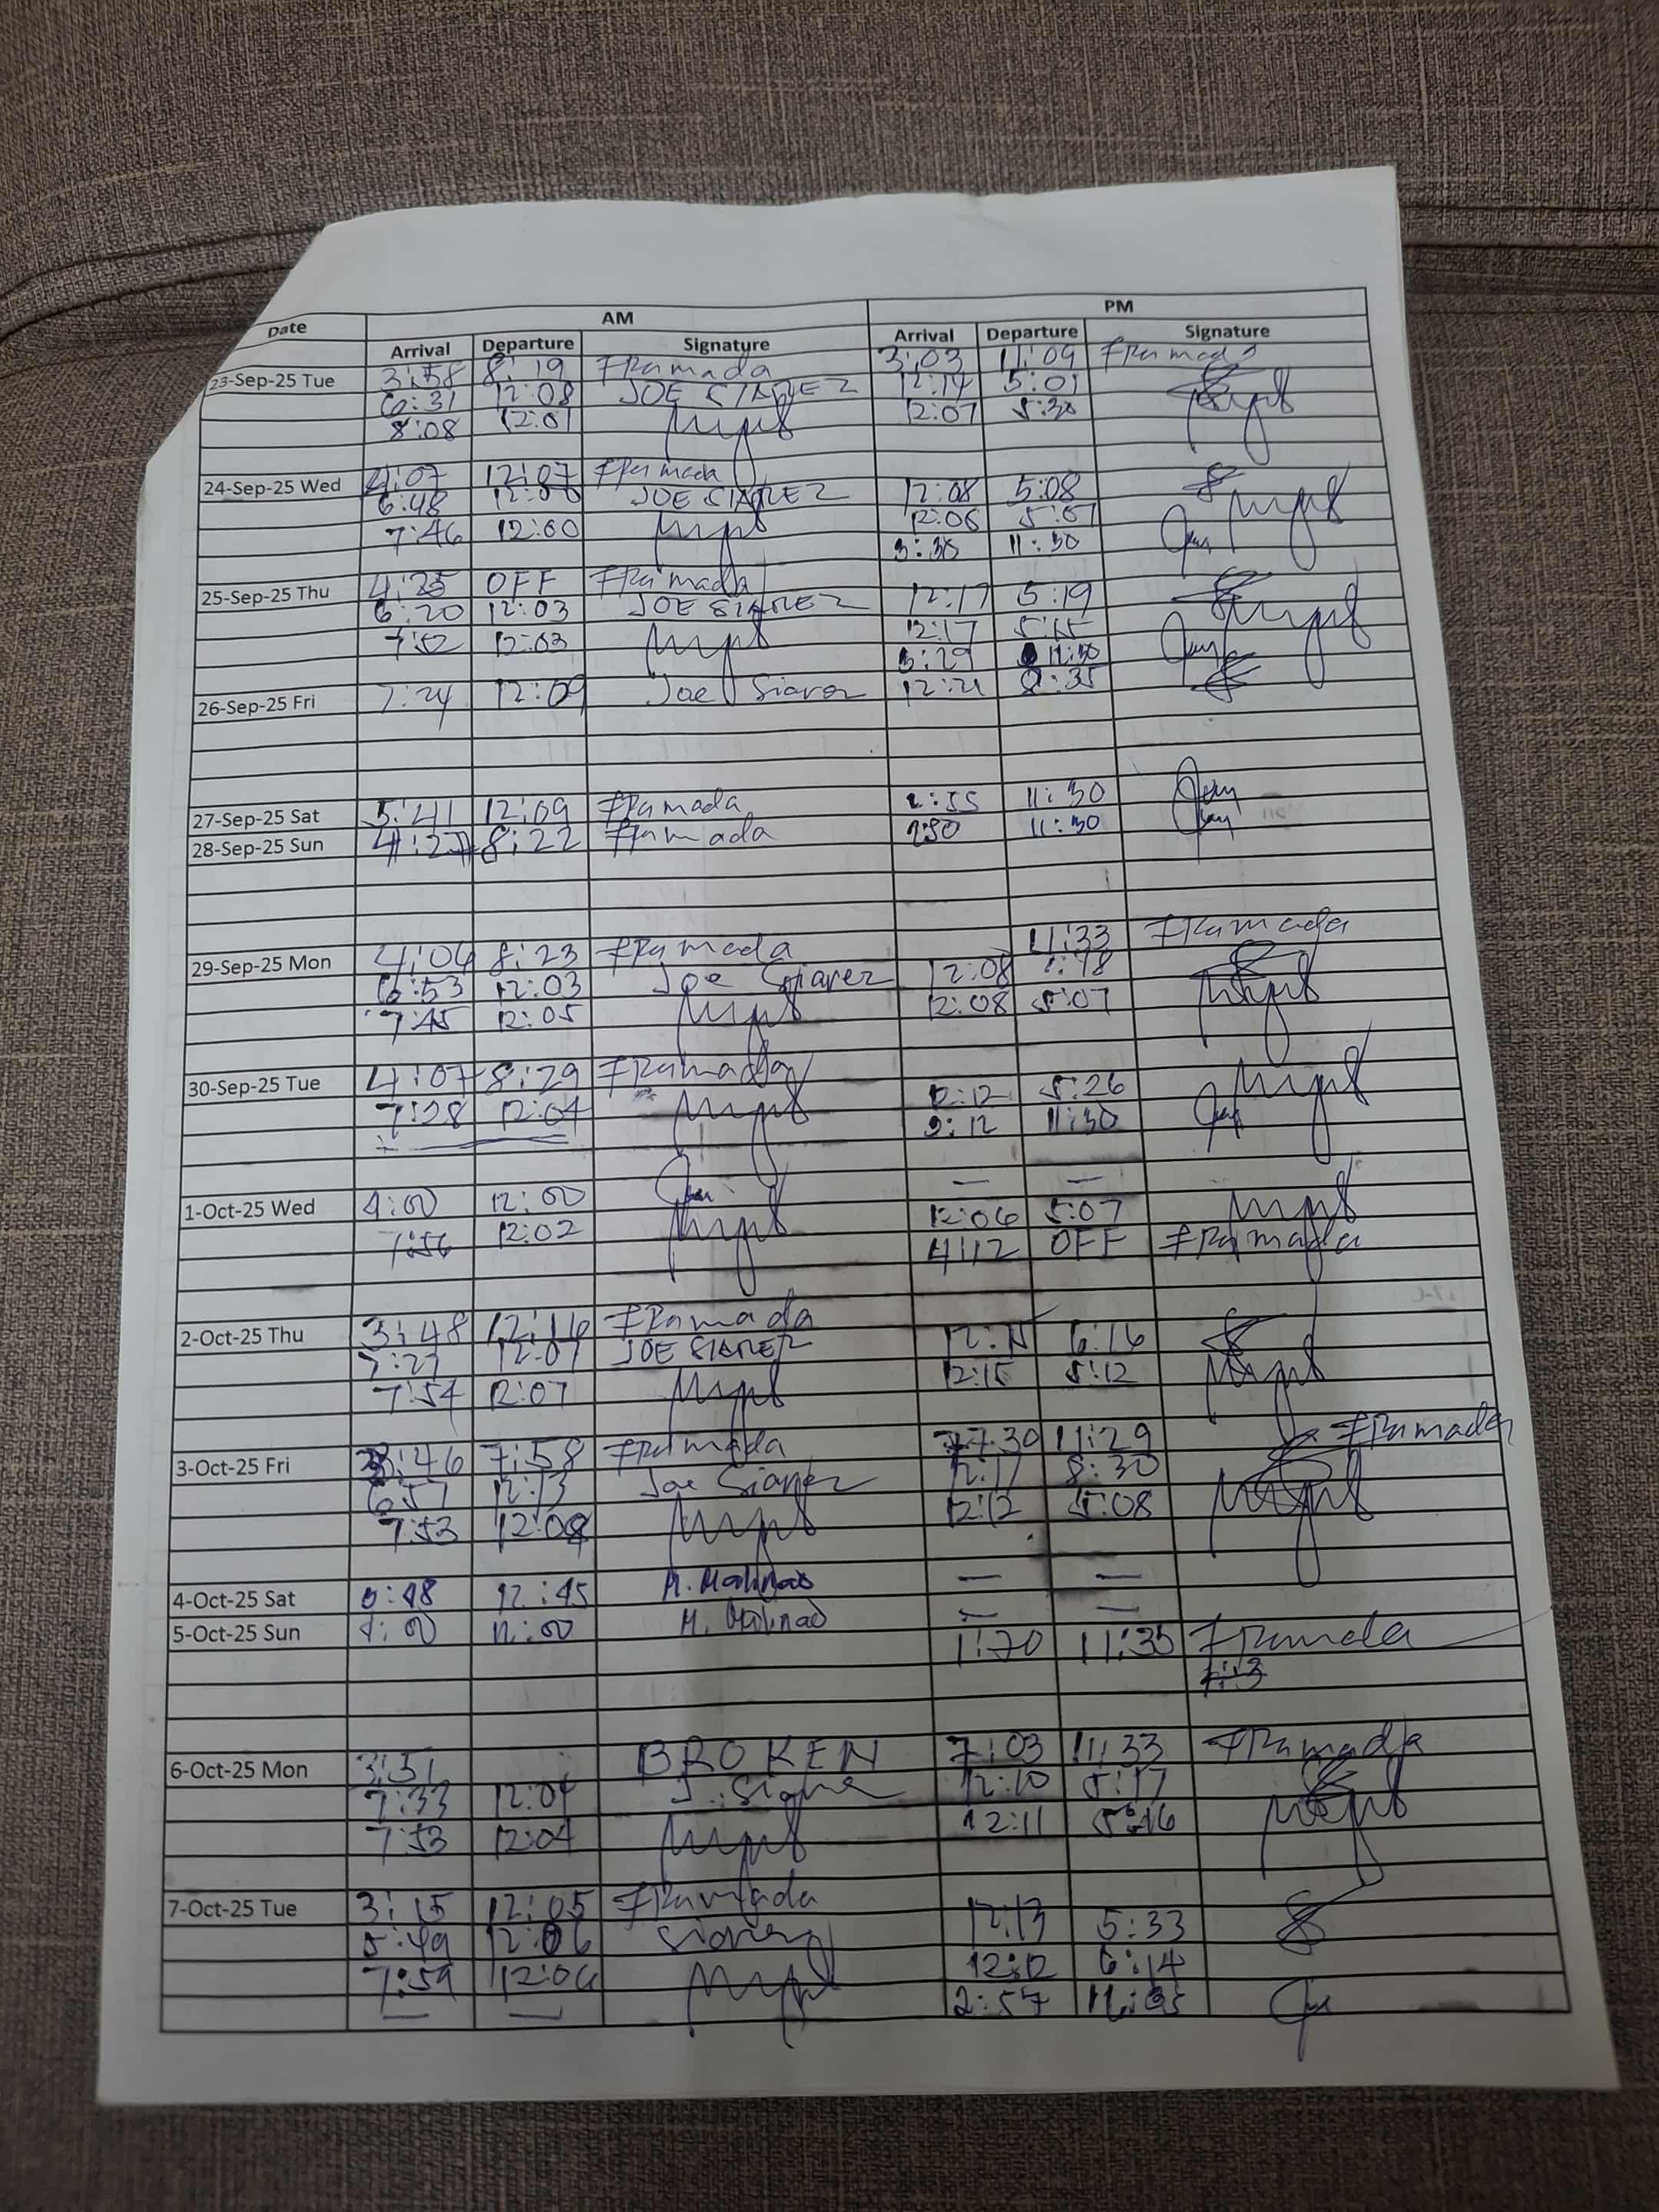 Date AM PM
Arrival Departure Signature Arrival Departure Signature
23-Sep-25 Tue 3:58 8:19 FRamada 3:03 11:09 FRamada
6:31 12:08 JOE SIAREZ 12:14 5:01
8:08 12:01 12:07 5:30
24-Sep-25 Wed 4:07 12:07 FRamada
6:48 12:06 JOE SIAREZ 12:08 5:08
7:46 12:00 12:06 5:07
3:30 11:30
25-Sep-25 Thu 4:25 OFF FRamada
6:20 12:03 JOE SIAREZ 12:17 5:19
7:52 12:03 12:17 5:15
3:29 11:30
26-Sep-25 Fri 7:24 12:09 Joe Siarez 12:21 8:35
27-Sep-25 Sat 5:41 12:09 FRamada 2:55 11:30
28-Sep-25 Sun 4:27 8:22 FRamada 11:30
29-Sep-25 Mon 4:04 8:23 FRamada 11:33 FRamada
6:53 12:03 Joe Siarez 12:08
7:45 12:05 12:08 5:07
30-Sep-25 Tue 4:07 8:29 FRamada
7:28 12:04 12:12 5:26
3:12 11:30
1-Oct-25 Wed 4:00 12:00 — —
7:56 12:02 12:06 5:07
4:12 OFF FRamada
2-Oct-25 Thu 3:48 12:16 FRamada
7:27 12:07 JOE SIAREZ 6:16
7:54 12:07 12:15 5:12
3-Oct-25 Fri 3:46 7:58 FRamada 7:30 11:29 FRamada
6:57 12:13 Joe Siarez 12:17 8:30
7:53 12:08 12:12 5:08
4-Oct-25 Sat 12:45 M. Malinao — —
5-Oct-25 Sun 4:00 12:00 M. Malinao — —
11:35 FRamada
6-Oct-25 Mon 3:51 BROKEN 7:03 11:33 FRamada
7:33 12:04 12:10 5:17
7:53 12:04 12:11 5:16
7-Oct-25 Tue 3:15 12:05 FRamada
5:49 12:06 Siarez 12:13 5:33
7:59 12:06 12:12 6:14
— — 2:57 11:35